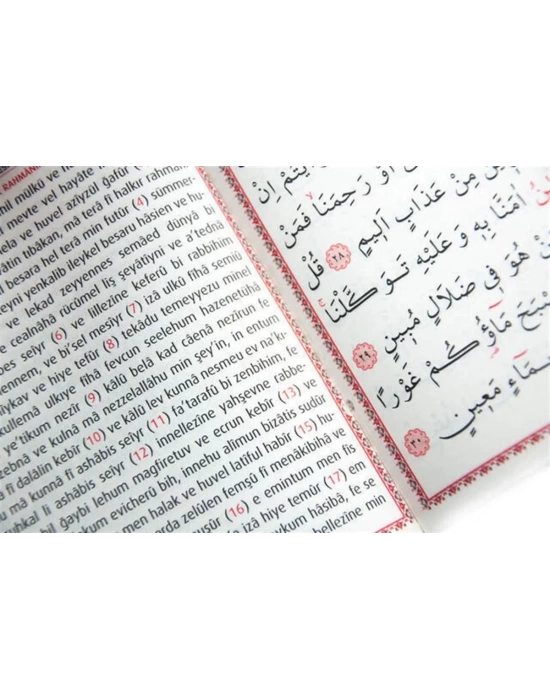 RAHMAN
mülkü ve
mevte vel hayâte
ve huvel azîyzül ğafûr
tıbâkan, mâ terâ fî halkır rahmâ
besara hel terâ min futûr (4) sümmer-
yenkalib ileykel besaru hâsien ve hu-
ve lekad zeyyennes semâed dünyâ bi
cealnâhâ rucûmel liş şeyâtîyni ve a'tednâ
bes seîyr (6) ve lillezîne keferû bi rabbihim
ennem, ve bi'sel mesîyr (7) izâ ulkû fîhâ semiû
îykav ve hiye tefûr (8) tekâdu temeyyezu minel
kullemâ ulkıye fîhâ fevcun seelehum hazenetühâ
e'tikum nezîr (9) kâlû belâ kad câenâ nezîrun fe
zebnâ ve kulnâ mâ nezzelallâhu min şey'in, in entum
fî dalâlin kebîr (10) ve kâlû lev kunnâ nesmeu ev na'k-
mâ kunnâ fî ashâbis seîyr (11) fa'tarafû bi zenbihim, fe
uhkal li ashâbis seîyr (12) innellezîne yahşevne rabbe-
bil ğaybi lehum mağfiretuv ve ecrun kebîr (13) ve
kum evicherû bih, innehu alîmun bizâtis sudûr
men halak ve huvel latîful habîr (15) hu-
arda zelûlen femşû fî menâkibihâ ve
uşûr (16) e emintum men fis
izâ hiye temûr (17) em
ykum hâsibâ, fe se
bellezîne min
يْتُمْ اِنْ
اَوْ رَحِمَنَا فَمَنْ
مِنْ عَذَابٍ اَلِيمٍ ﴿٢٨﴾ قُلْ
اٰمَنَّا بِهٖ وَعَلَيْهِ تَوَكَّلْنَا
هُوَ فِي ضَلَالٍ مُبِينٍ ﴿٢٩﴾
مَاؤُكُمْ غَوْرًا
مَعِينٍ ﴿٣٠﴾